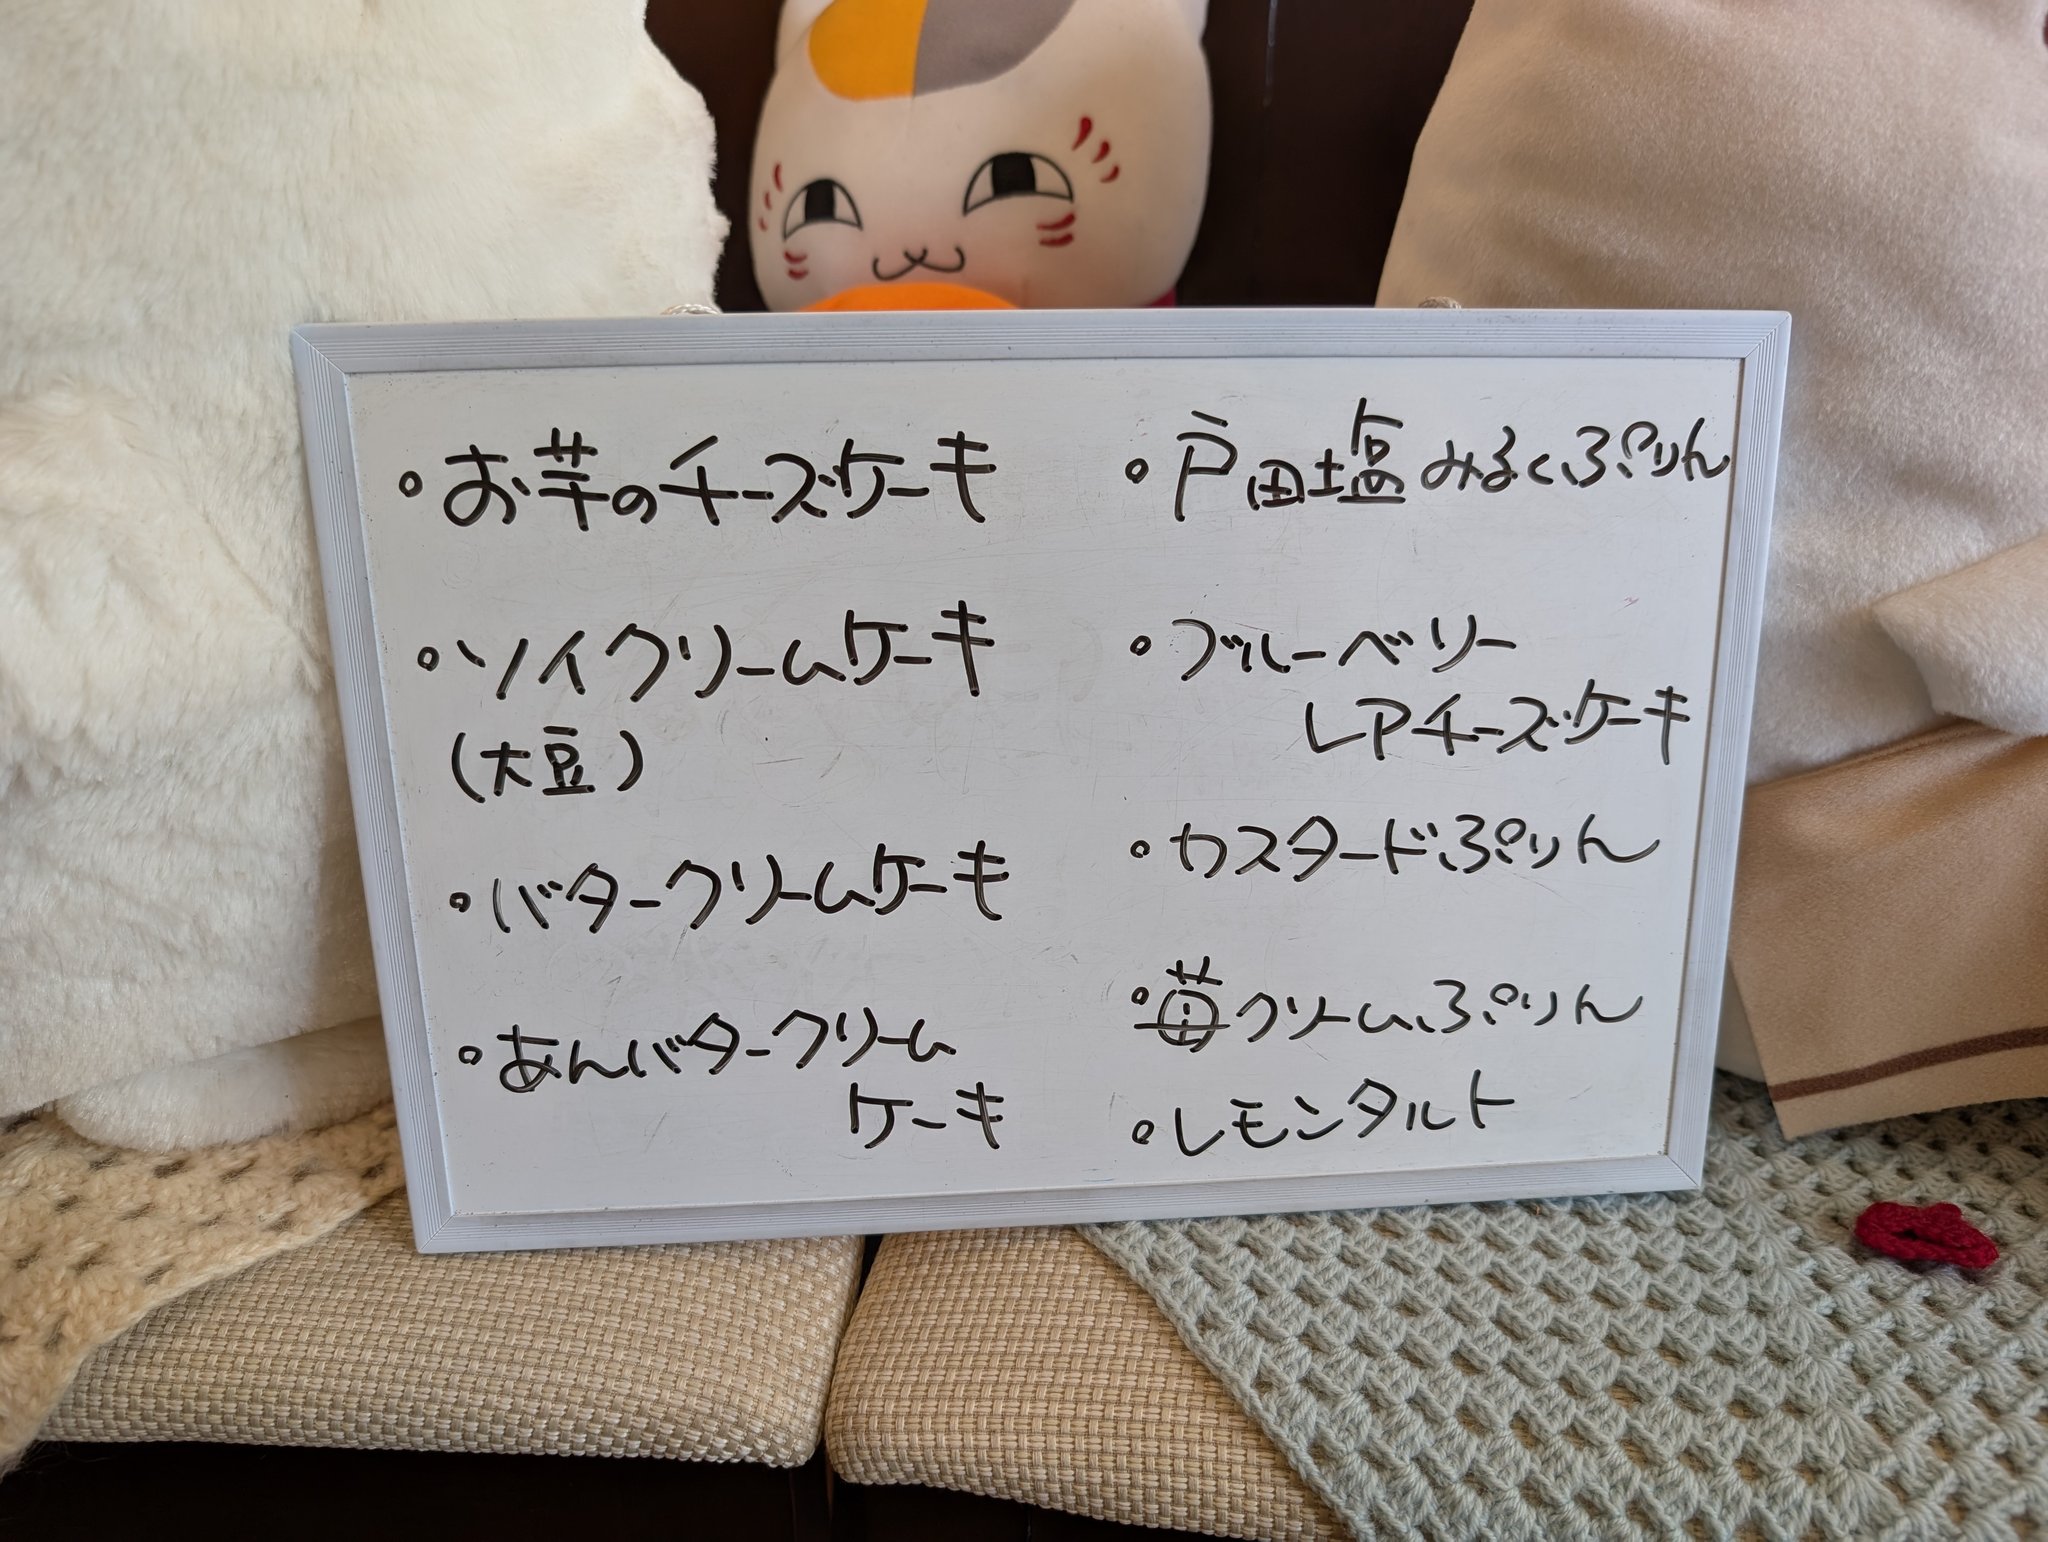 ・お芋のチーズケーキ
・ソイクリームケーキ
(大豆)
・バタークリームケーキ
・あんバタークリーム
ケーキ
・戸田塩みるくぷりん
・ブルーベリー
レアチーズケーキ
・カスタードぷりん
・苺クリームぷりん
・レモンタルト